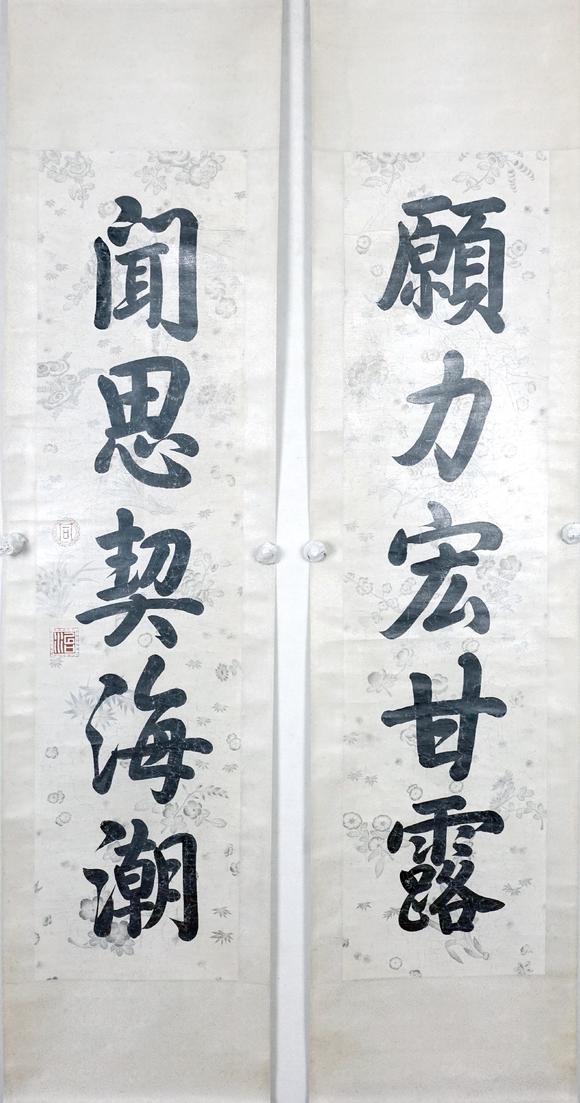 願力宏甘露
聞思契海潮